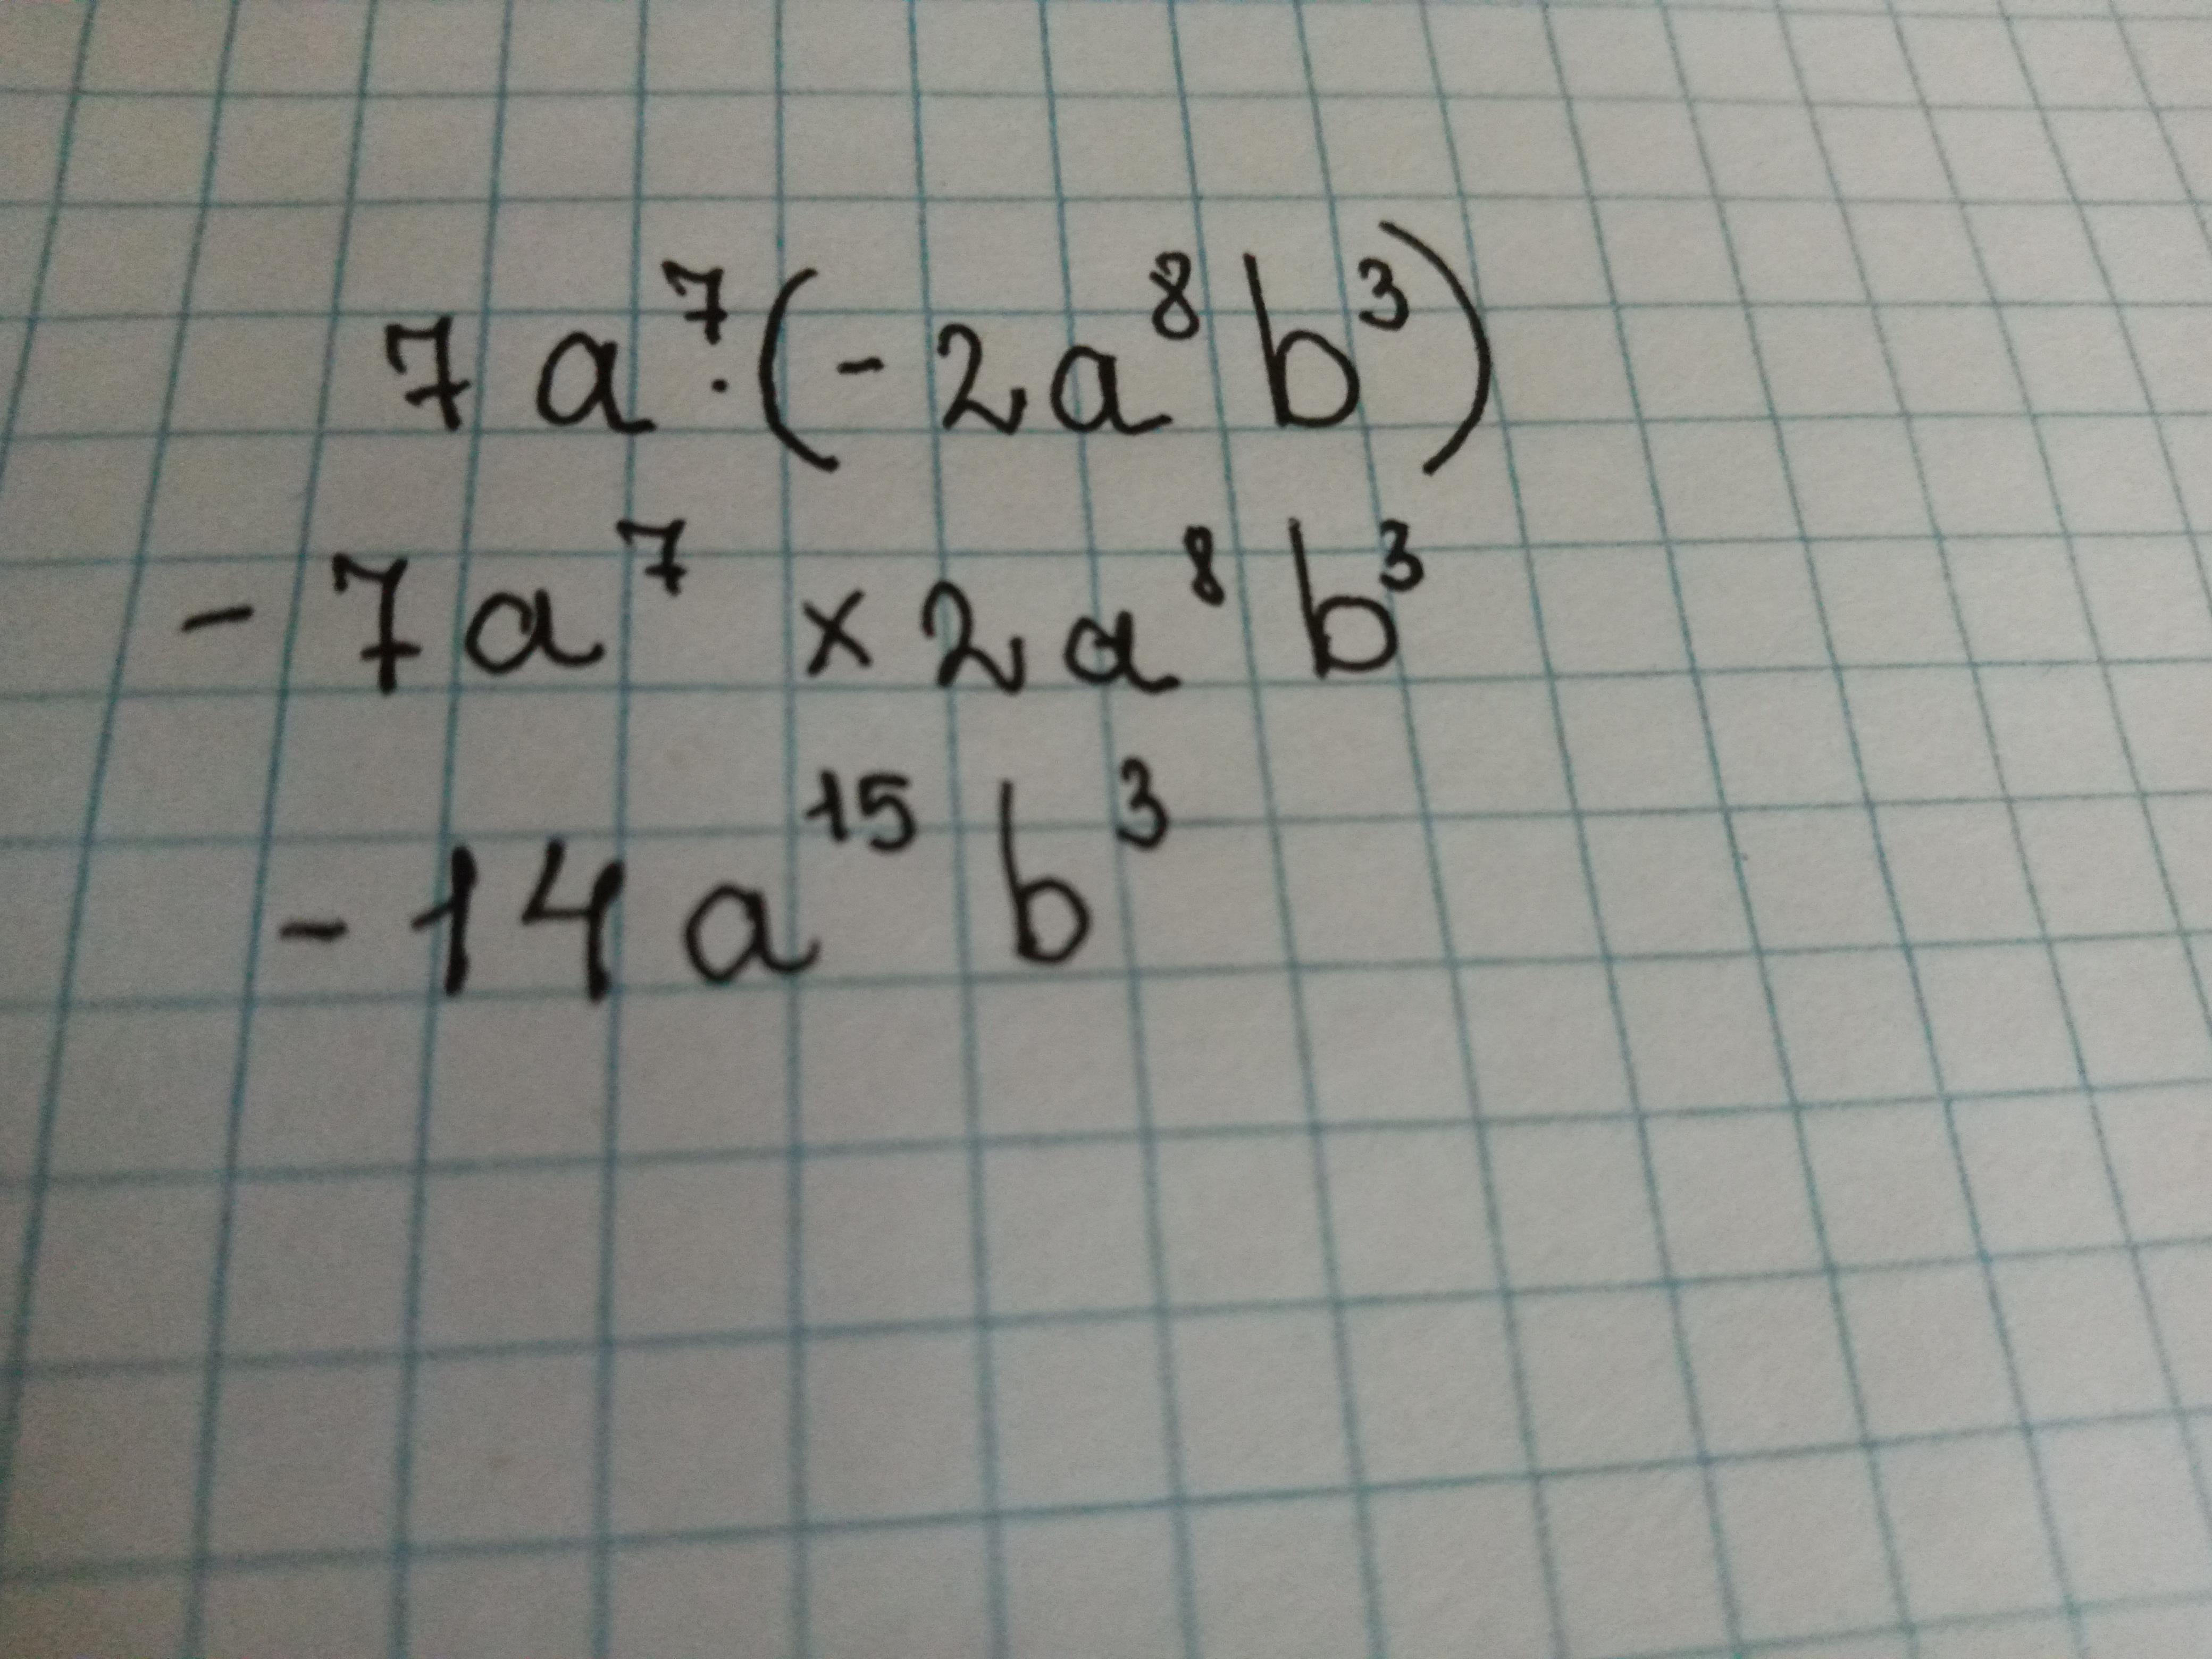 7a⁷·(-2a⁸b³)
-7a⁷ × 2a⁸b³
-14a¹⁵b³